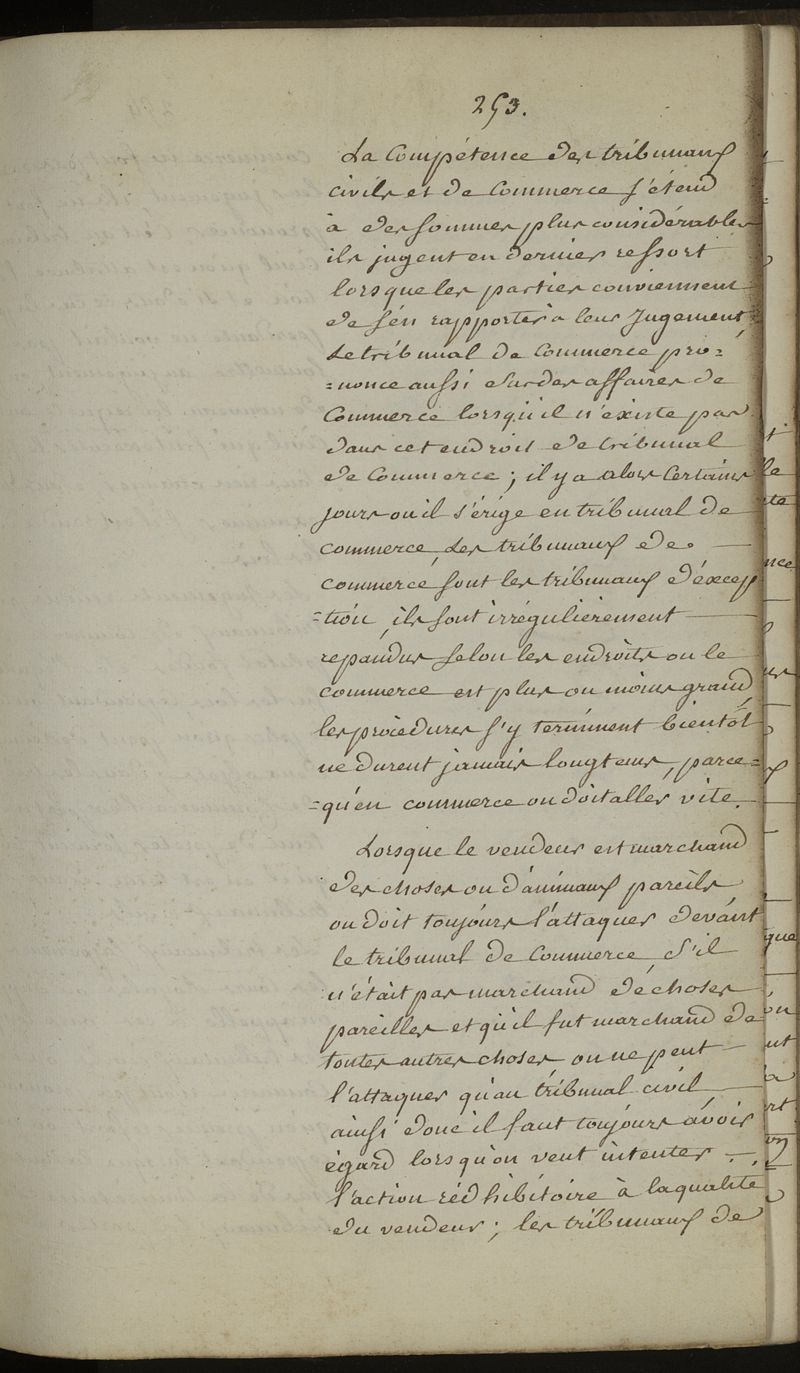 293.
La Compétence des tribunaux
civils et de Commerce s'étend
à des sommes plus considérables
ils jugent en dernier ressort
lorsque les parties conviennent
de s'én rapporter à leur Jugement,
Le tribunal de Commerce pro=
=nonce aussi sur des affaires de
Commerce lorsqu'il n'existe pas
dans cet endroit de tribunal
de Commerce; il y a alors Certains
jours ou il s'érige en tribunal de
commerce, Les tribunaux de
commerce sont les tribunaux d'éxcep
=tion, ils sont irrégulierement
repandus selon les endroits ou le
commerce est plus ou moins grand,
les procedures s'y terminent bientôt
ne durent jamais longtems, parce=
=qu'en commerce on doit aller vite.
Lorsque le vendeur est marchand
des choses ou d'animaux pareils
on doit toujours l'attaquer devant
le tribunal de Commerce, S'il
n'était pas marchand de choses
pareilles et qu'il fut marchand de
toutes autres choses, on ne peut
l'attaquer qu'au tribunal civil,
ainsi donc il faut toujours avoir
égard lorsqu'on veut intenter
l'action rédhibitoire à la qualité
du vendeur; les tribunaux de